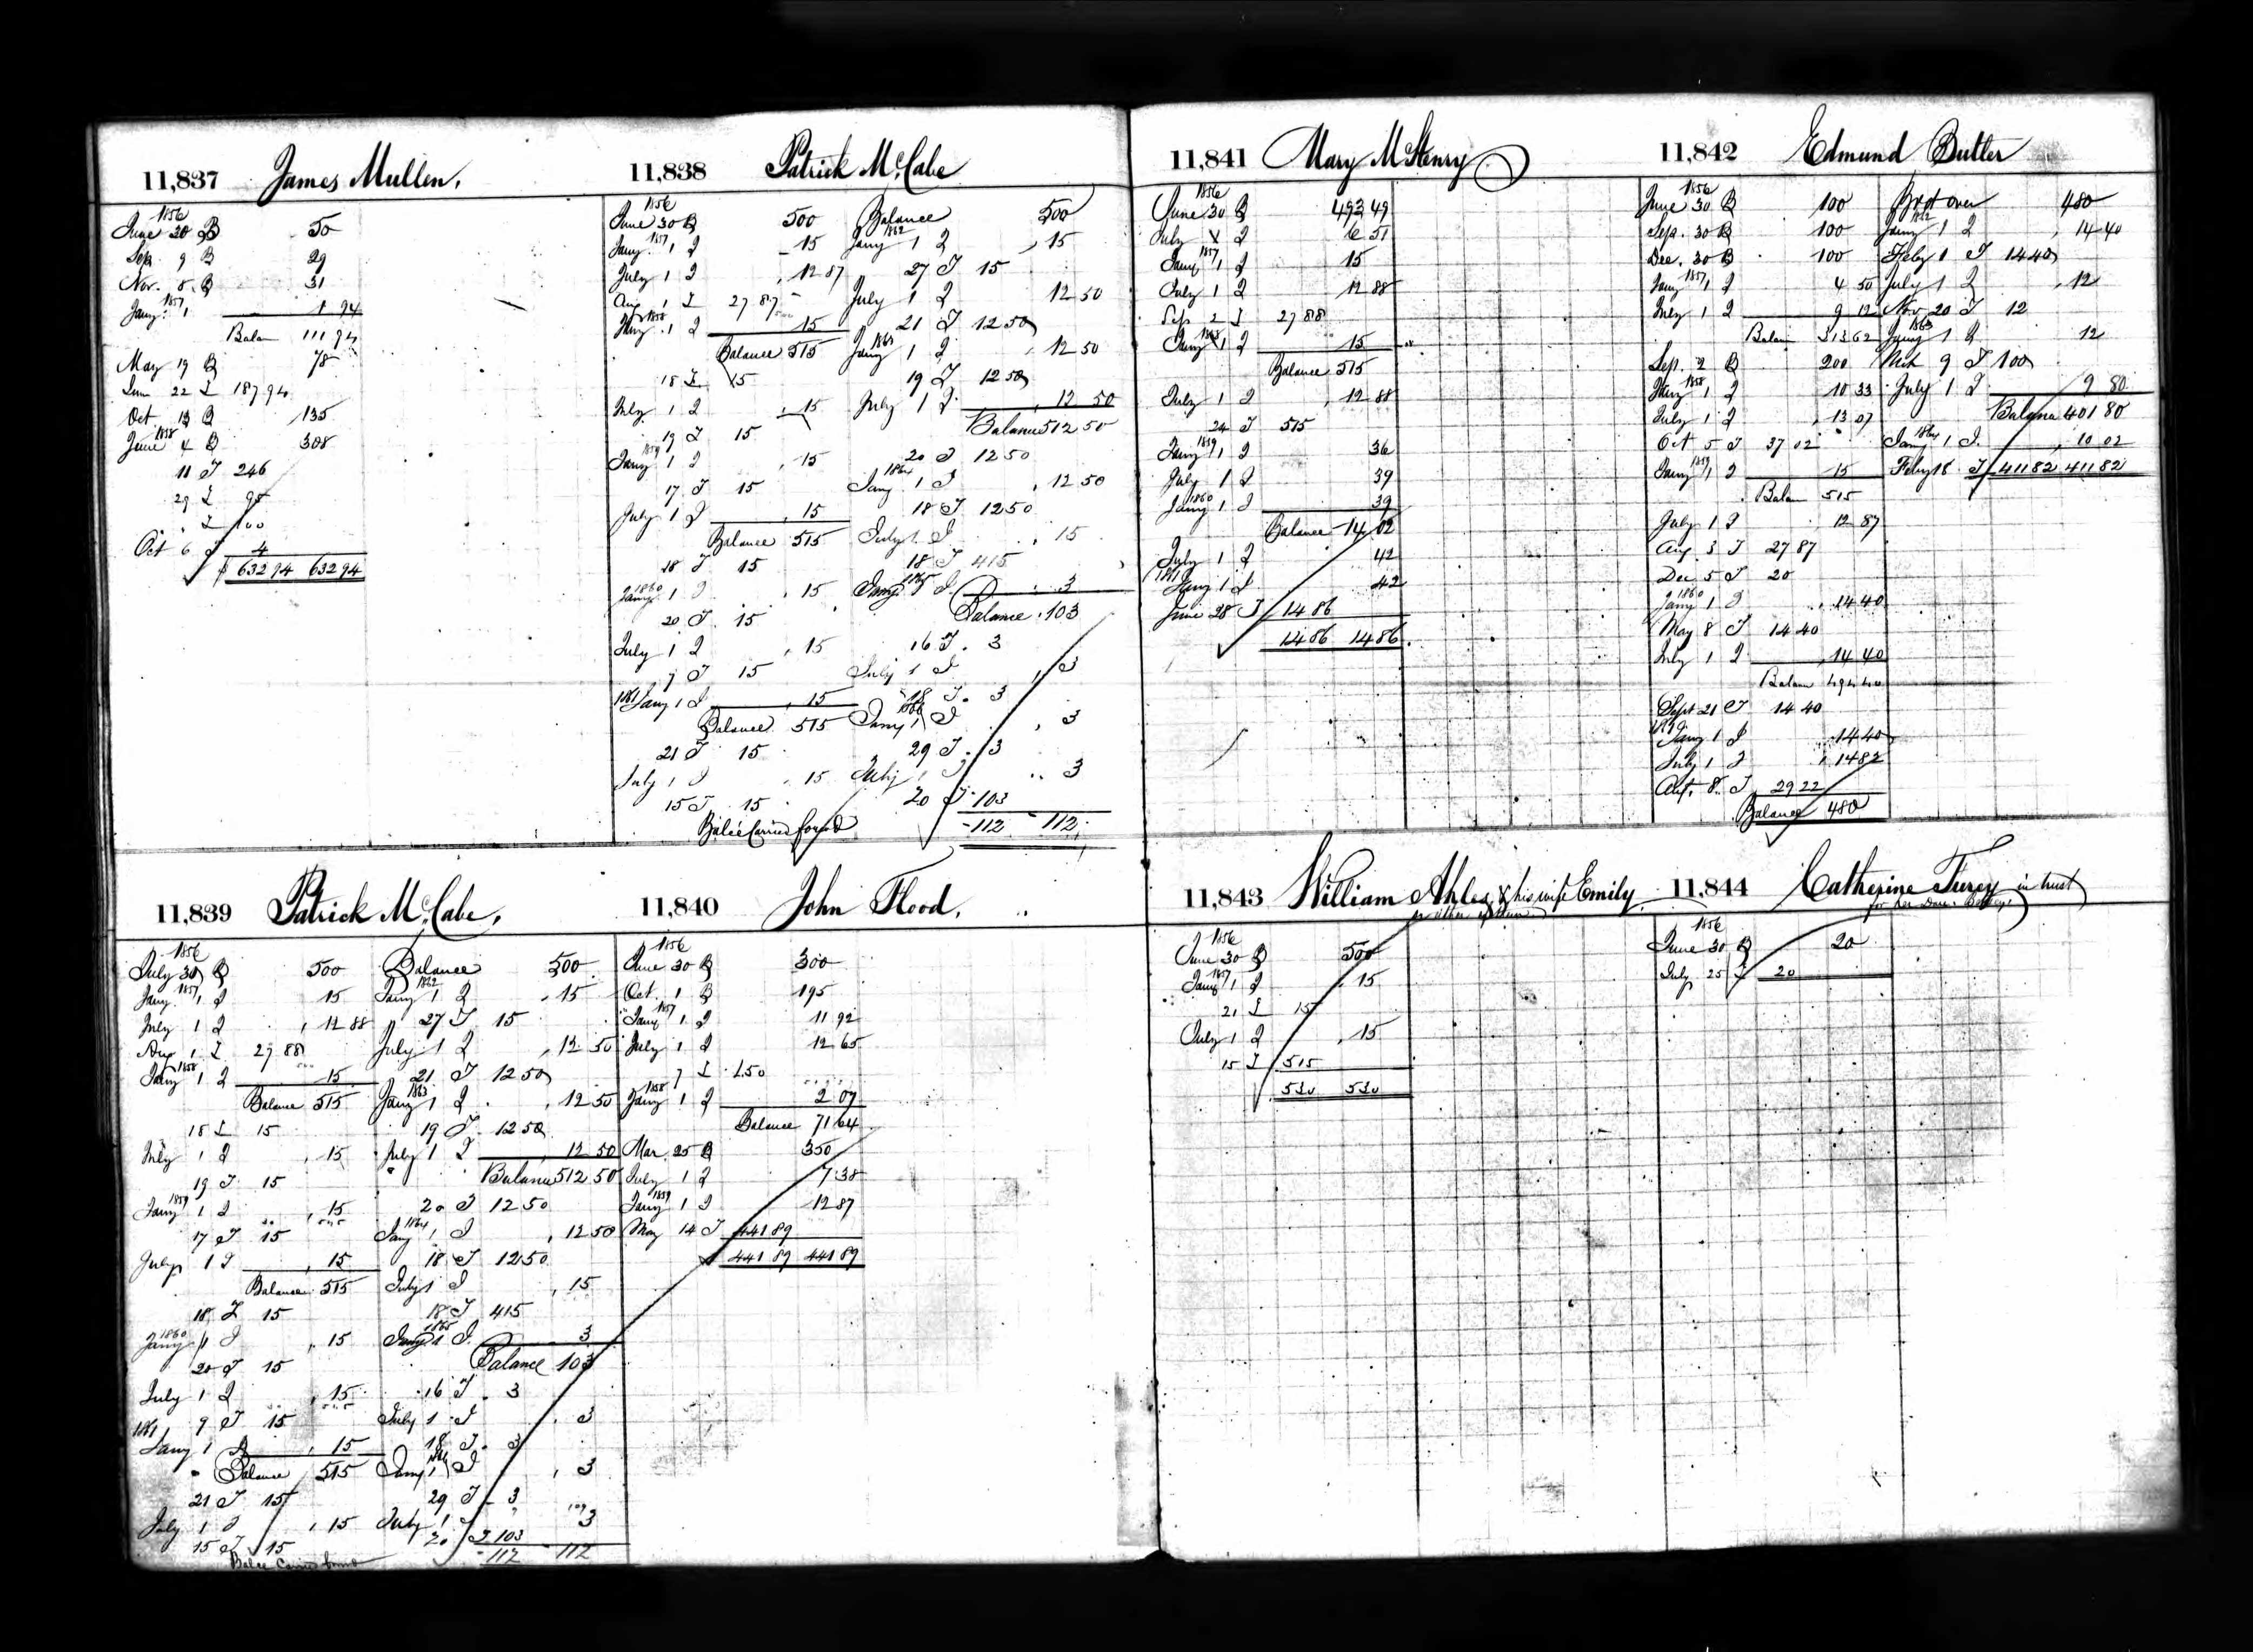 11,837 James Mullen.
1856
June 30 B 50
Sep. 9 B 29
Nov. 5 B 31
1857
Jany. 1 1 94
Balan 111 94
May 19 B 78
June 22 I 187 94
Oct 13 B 135
1858
June 4 B 308
11 T 246
29 I 95
" I 100
Oct 6 T 4
$ 632 94 632 94
11,838 Patrick McCabe
1856
June 30 B 500
1857
Jany. 1 I 15
July 1 I 12 87
Aug 1 I 27 87
1858
Jany. 1 I 15
Balance 515
18 I 15
July 1 I 15
19 I 15
1859
Jany 1 I 15
17 T 15
July 1 I 15
Balance 515
18 T 15
1860
Jany 1 I 15
20 T 15
July 1 I 15
9 T 15
1861 Jany 1 I 15
Balance 515
21 T 15
July 1 I 15
15 T 15
Balce Carried forwd
Balance 500
1862
Jany 1 I 15
27 T 15
July 1 I 12 50
21 T 12 50
1863
Jany 1 I 12 50
19 T 12 50
July 1 I 12 50
Balance 512 50
20 T 12 50
1864
Jany 1 I 12 50
18 T 12 50
July 1 I 15
18 T 415
1865
Jany 1 I 3
Balance 103
16 T 3
July 1 I 3
18 T 3
1866
Jany 1 I 3
29 T 3
July 1 I 3
20 T 103
112 112
11,839 Patrick McCabe,
1856
July 30 B 500
1857
Jany. 1 I 15
July 1 I 12 88
Aug 1 I 27 88
1858
Jany 1 I 15
Balance 515
18 I 15
July 1 I 15
19 T 15
1859
Jany 1 I 15
17 T 15
July 1 I 15
Balance 515
18 T 15
1860
Jany 1 I 15
20 T 15
July 1 I 15
9 T 15
1861
Jany 1 I 15
Balance 515
21 T 15
July 1 I 15
15 T 15
Balce Carried forwd
Balance 500
1862
Jany 1 I 15
27 T 15
July 1 I 12 50
21 T 12 50
1863
Jany 1 I 12 50
19 T 12 50
July 1 I 12 50
Balance 512 50
20 T 12 50
1864
Jany 1 I 12 50
18 T 12 50
July 1 I 15
18 T 415
1865
Jany 1 I 3
Balance 103
16 T 3
July 1 I 3
18 T 3
1866
Jany 1 I 3
29 T 3
July 1 I 3
20 T 103
112 112
11,840 John Flood.
1856
June 30 B 300
Oct. 1 B 195
1857
Jany 1 I 11 92
July 1 I 12 65
7 I 450
1858
Jany 1 I 2 07
Balance 71 64
Mar. 25 B 350
July 1 I 7 38
1859
Jany 1 I 12 87
May 14 T 441 89
441 89 441 89
11,841 Mary McHenry
1856
June 30 B 493 49
July I 6 51
1857
Jany 1 I 15
July 1 I 12 88
Sep 2 I 27 88
1858
Jany 1 I 15
Balance 515
July 1 I 12 88
24 T 515
1859
Jany 1 I 36
July 1 I 39
1860
Jany 1 I 39
Balance 14 02
July 1 I 42
1861
Jany 1 I 42
June 28 T 14 86
14 86 14 86
11,842 Edmund Butler
1856
June 30 B 100
Sep. 30 B 100
Dec. 30 B 100
1857
Jany 1 I 4 50
July 1 I 9 12
Balan 313 62
Sep. 2 B 200
1858
Jany 1 I 10 33
July 1 I 13 07
Oct 5 T 37 02
1859
Jany 1 I 15
Balan 515
July 1 I 12 87
Aug 3 T 27 87
Dec 5 T 20
1860
Jany 1 I 14 40
May 8 T 14 40
July 1 I 14 40
Balan 494 40
Sept 21 T 14 40
Jany 1 I 14 40
July 1 I 14 82
8 T 29 22
Balance 480
Brot over 480
1862
Jany 1 I 14 40
Feby 1 T 14 40
July 1 I 12
Nov 20 T 12
1863
Jany 1 I 12
Mch 9 T 100
July 1 I 9 80
Balance 401 80
1864
Jany 1 I. 10 02
Feby 18 T 411 82 411 82
11,843 William Ahles & his wife Emily.
1856
June 30 B 500
1857
Jany 1 I 15
21 I 15
July 1 I 15
15 I 515
530 530
11,844 Catherine Furey in trust
for her Daur.
1856
June 30 B 20
July 25 I 20